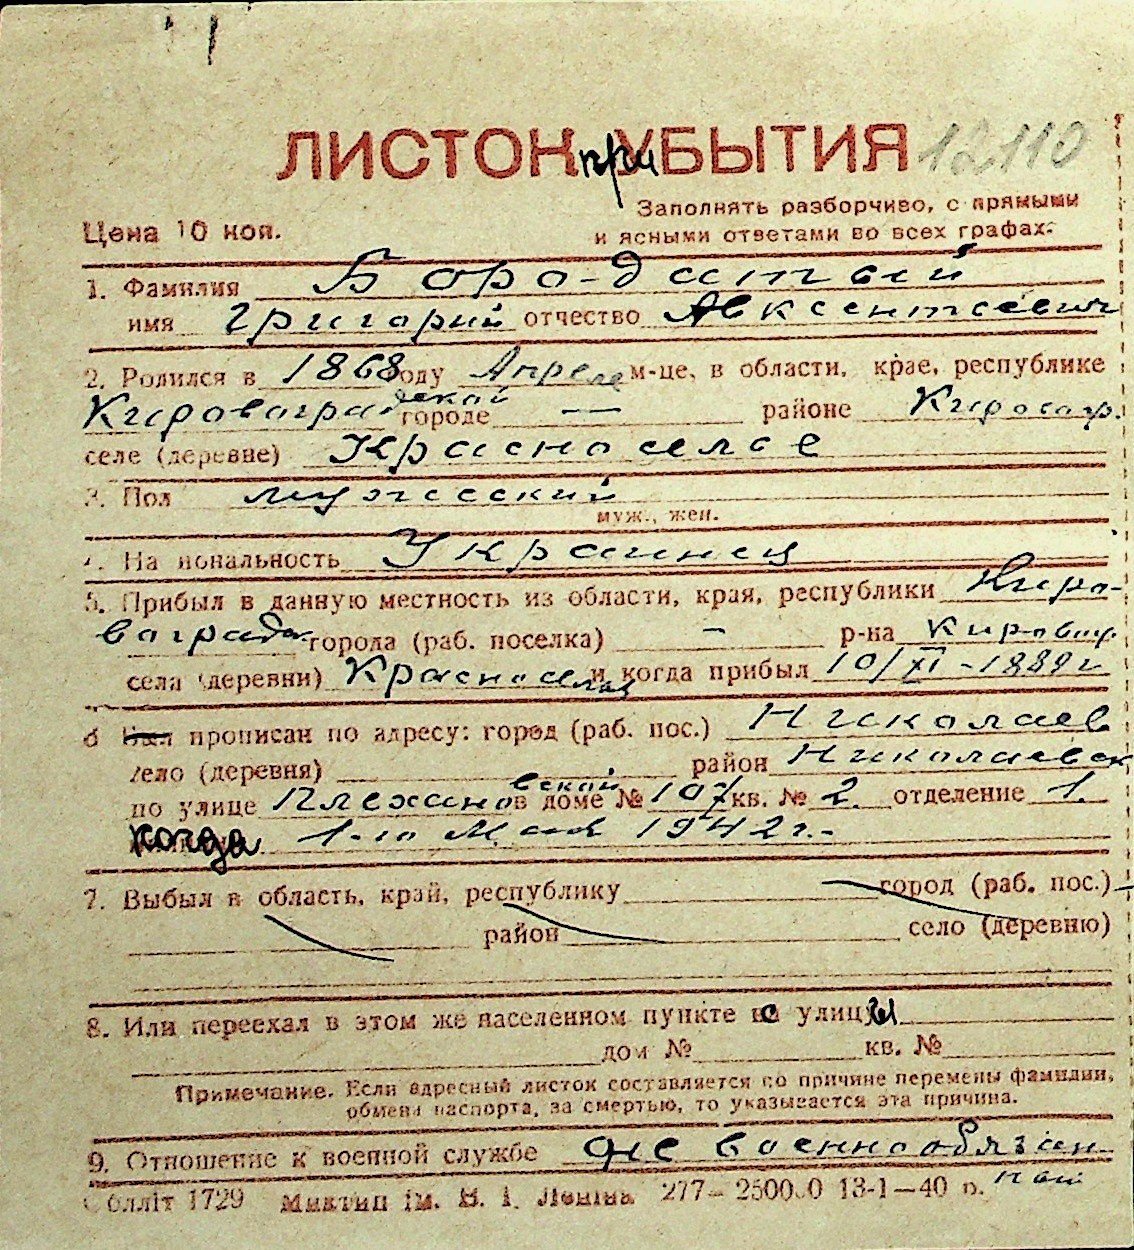 ЛИСТОК при УБЫТИЯ 12110
Заполнять разборчиво, с прямыми
Цена 10 коп. и ясными ответами во всех графах.
1. Фамилия Боро-датый
имя Григорий отчество Авксентьевич
2. Родился в 1868 году Апреле м-це, в области, крае, республике
Кировоградской городе — районе Кировогр.
селе (деревне) Красноселье
3. Пол мужеский
муж., жен.
4. Национальность Украинец
5. Прибыл в данную местность из области, края, республики Киро-
воград. города (раб. поселка) — р-на Кировогр.
села (деревни) и когда прибыл 10/XI-1889 г
6 Был прописан по адресу: город (раб. пос.) Николаев
село (деревня) район Николаевск
по улице Плехановской доме № 107 кв. № 2. отделение 1.
когда 1-го Мая 1942 г.-
7. Выбыл в область, край, республику город (раб. пос.)
район село (деревню)
8. Или переехал в этом же населенном пункте с улицы
дом № кв. №
Примечание. Если адресный листок составляется по причине перемены фамилии,
обмена паспорта, за смертью, то указывается эта причина.
9. Отношение к военной службе не военнообязан-
ный
Облліт 1729 ім. В. І. Леніна 277—25000 13-1—40 р.